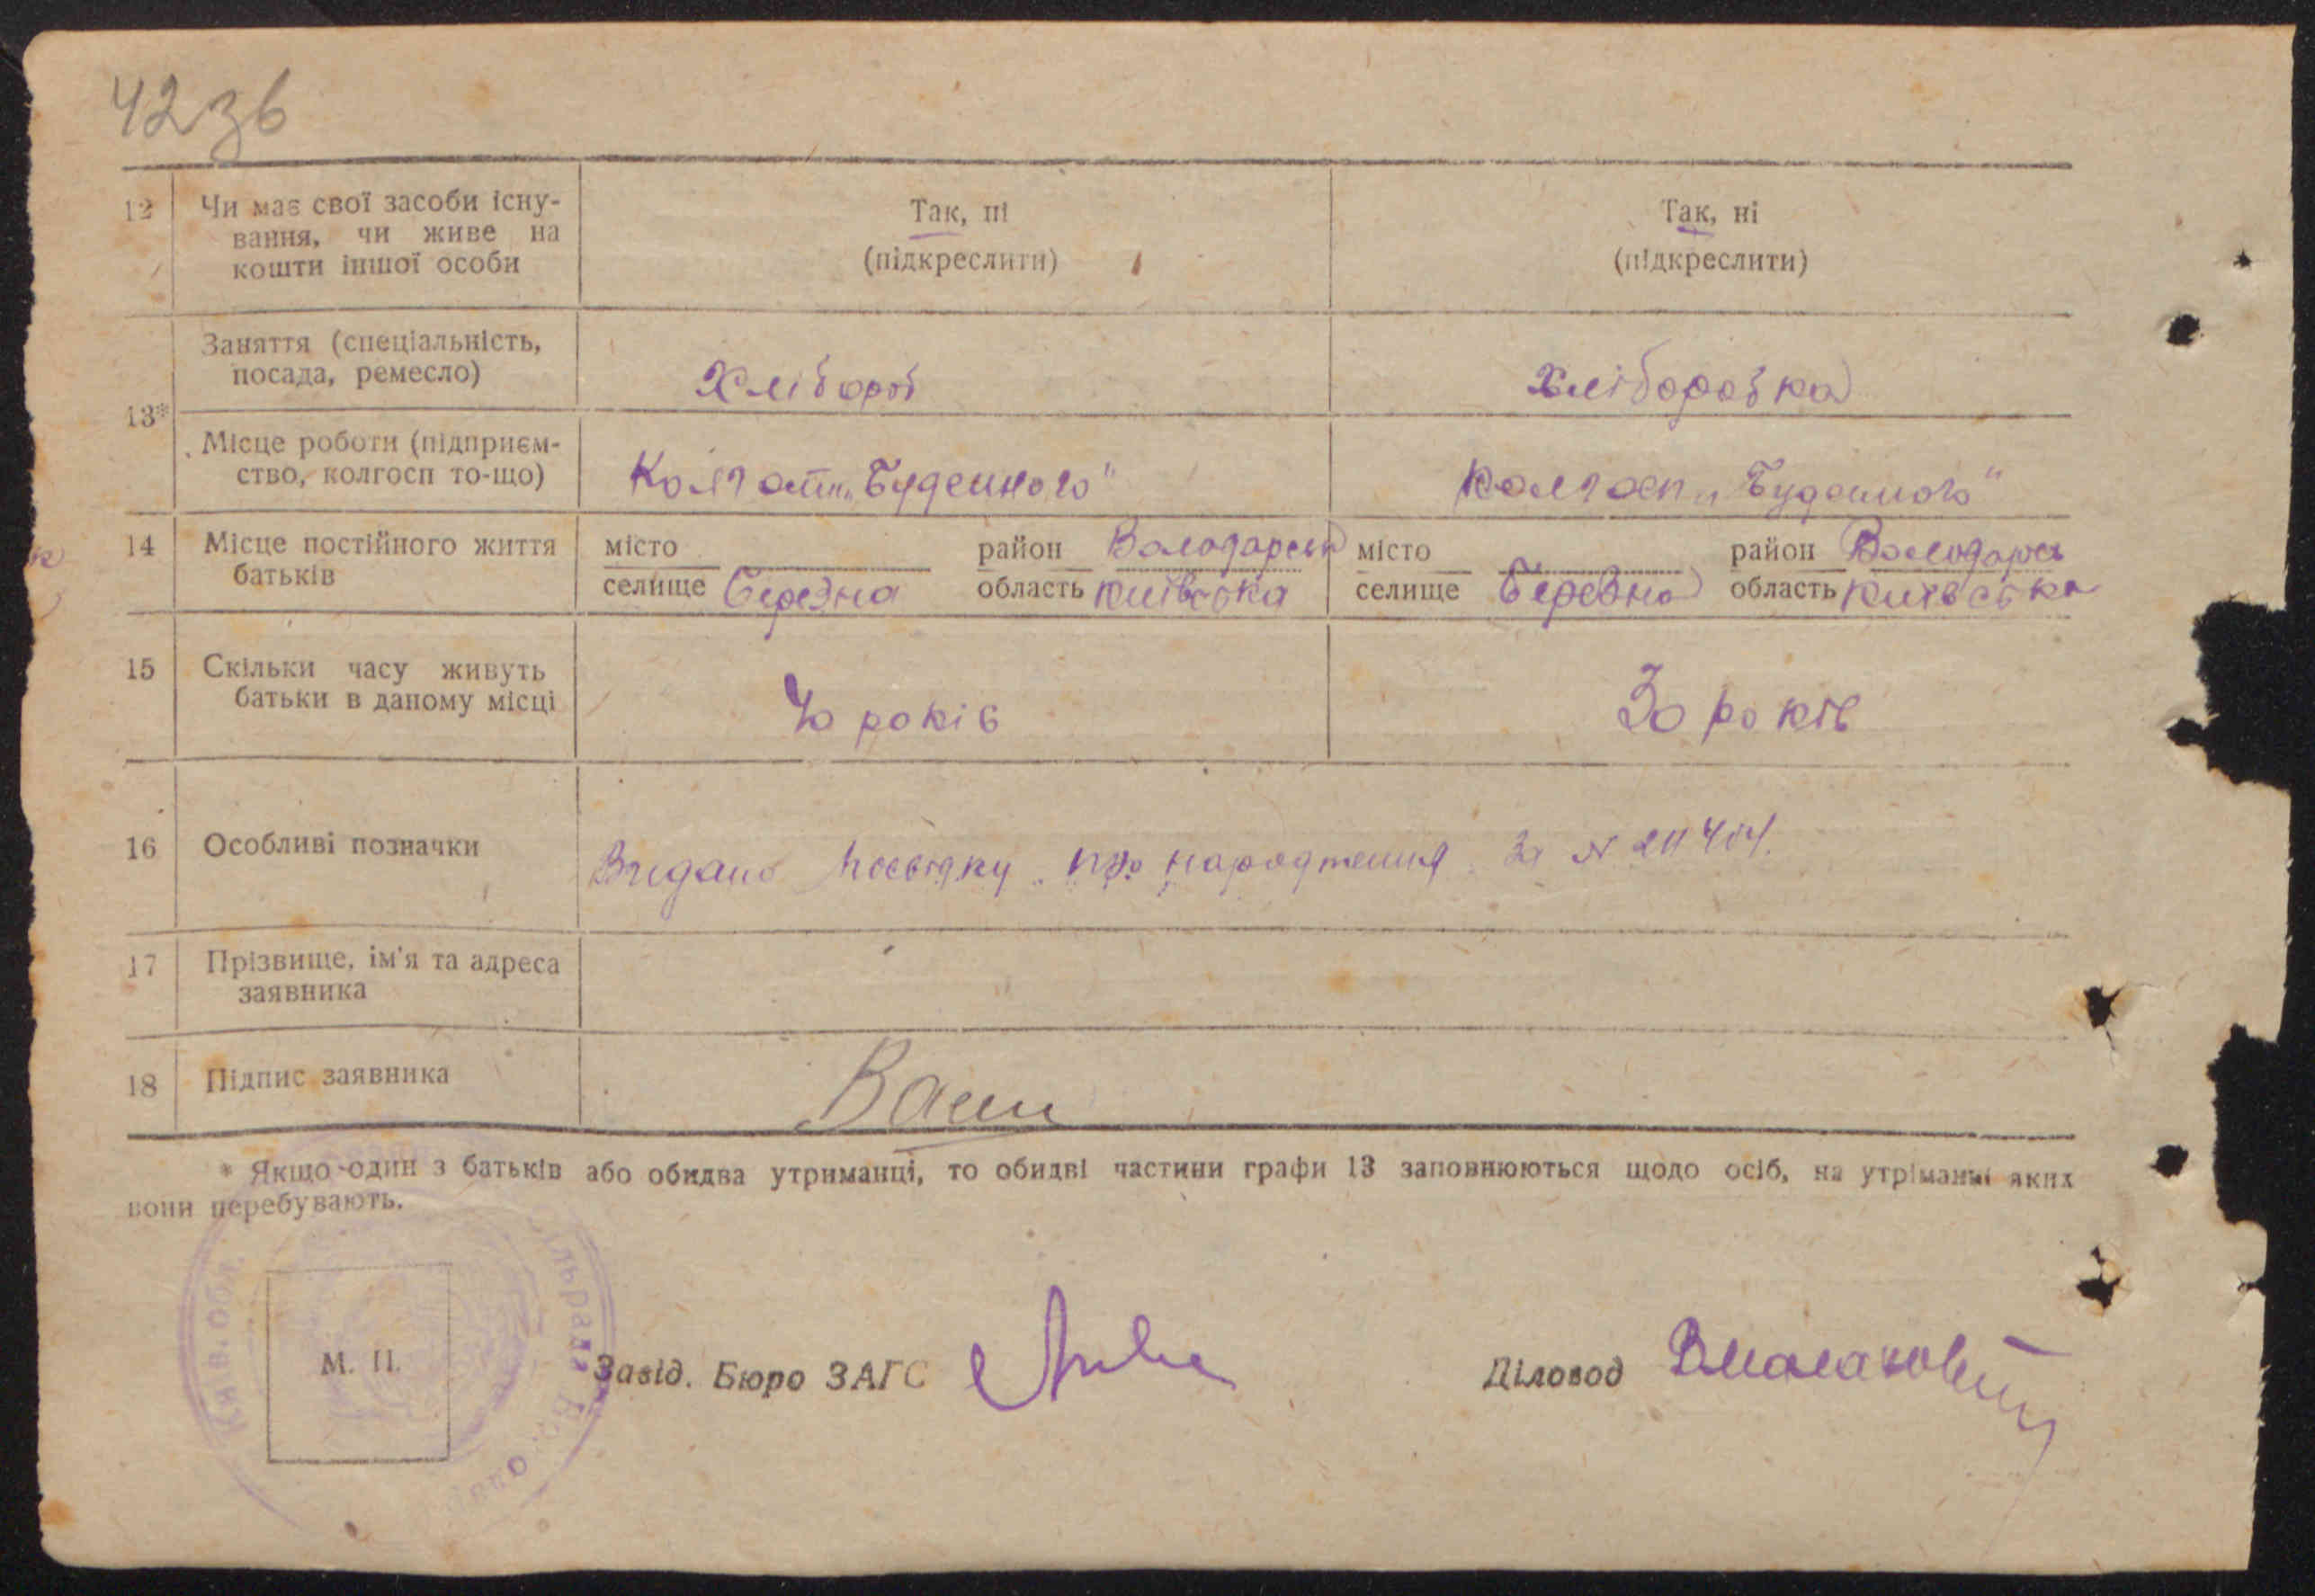 42зв
12 Чи має свої засоби існу-
вання, чи живе на
кошти іншої особи
Так, ні
(підкреслити)
Так, ні
(підкреслити)
13* Заняття (спеціальність,
посада, ремесло)
Хлібороб
Хліборобка
Місце роботи (підприєм-
ство, колгосп то-що)
Колгосп „Буденного"
Колгосп „Буденного"
14 Місце постійного життя
батьків
місто район Володарськ
селище Березна область Київська
місто район Володарсь
селище Березна область Київська
15 Скільки часу живуть
батьки в даному місці
40 років
30 років
16 Особливі позначки
Видано посвідку про народження за №
17 Прізвище, ім'я та адреса
заявника
18 Підпис заявника
* Якщо один з батьків або обидва утриманці, то обидві частини графи 13 заповнюються щодо осіб, на утріманні яких
вони перебувають.
Київ. Обл.
М. П.
Завід. Бюро ЗАГС
Діловод